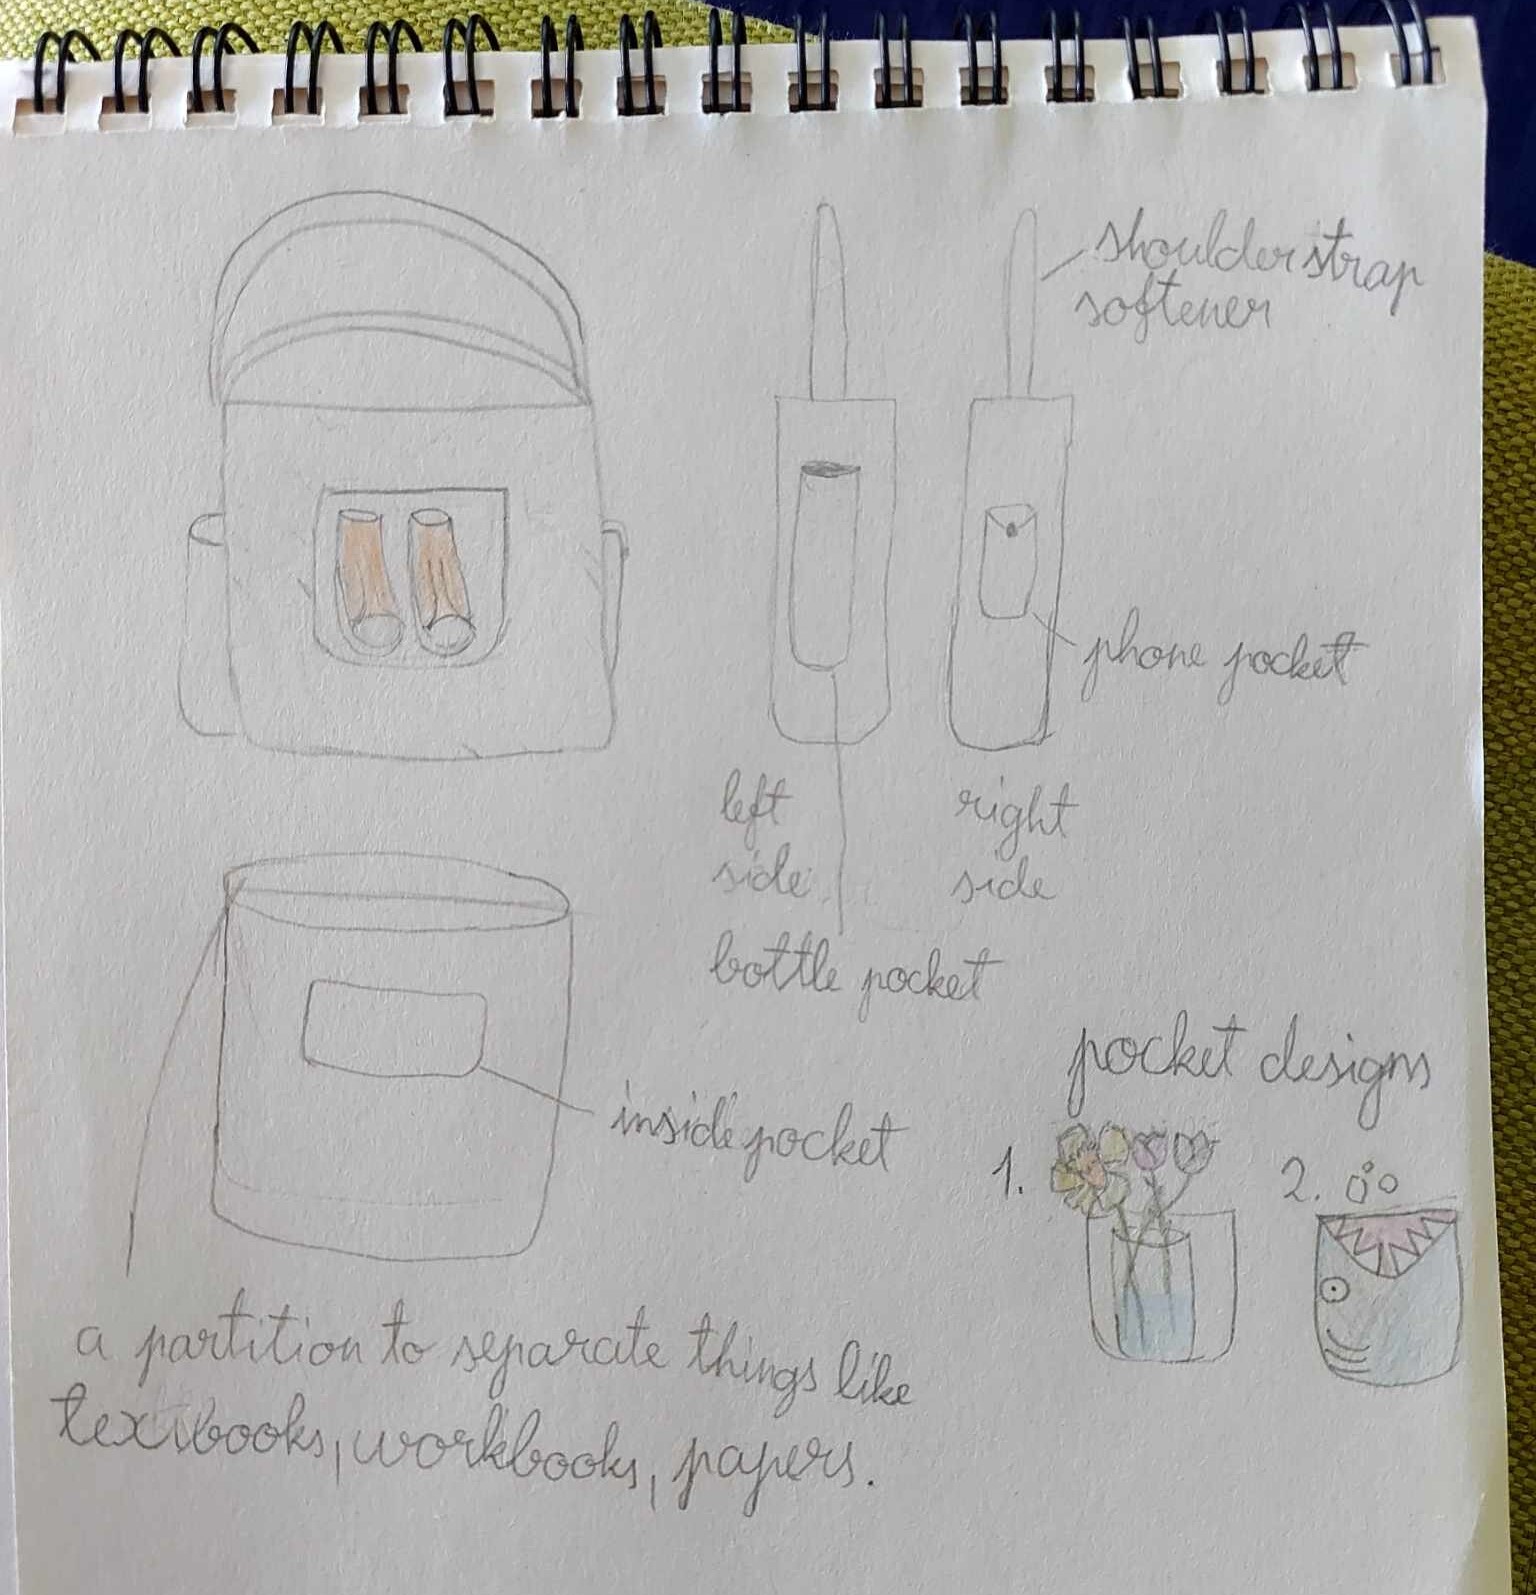 shoulder strap
softener
phone pocket
left
side
right
side
bottle pocket
inside pocket
pocket designs
1.
2.
a partition to separate things like
textbooks, workbooks, papers.